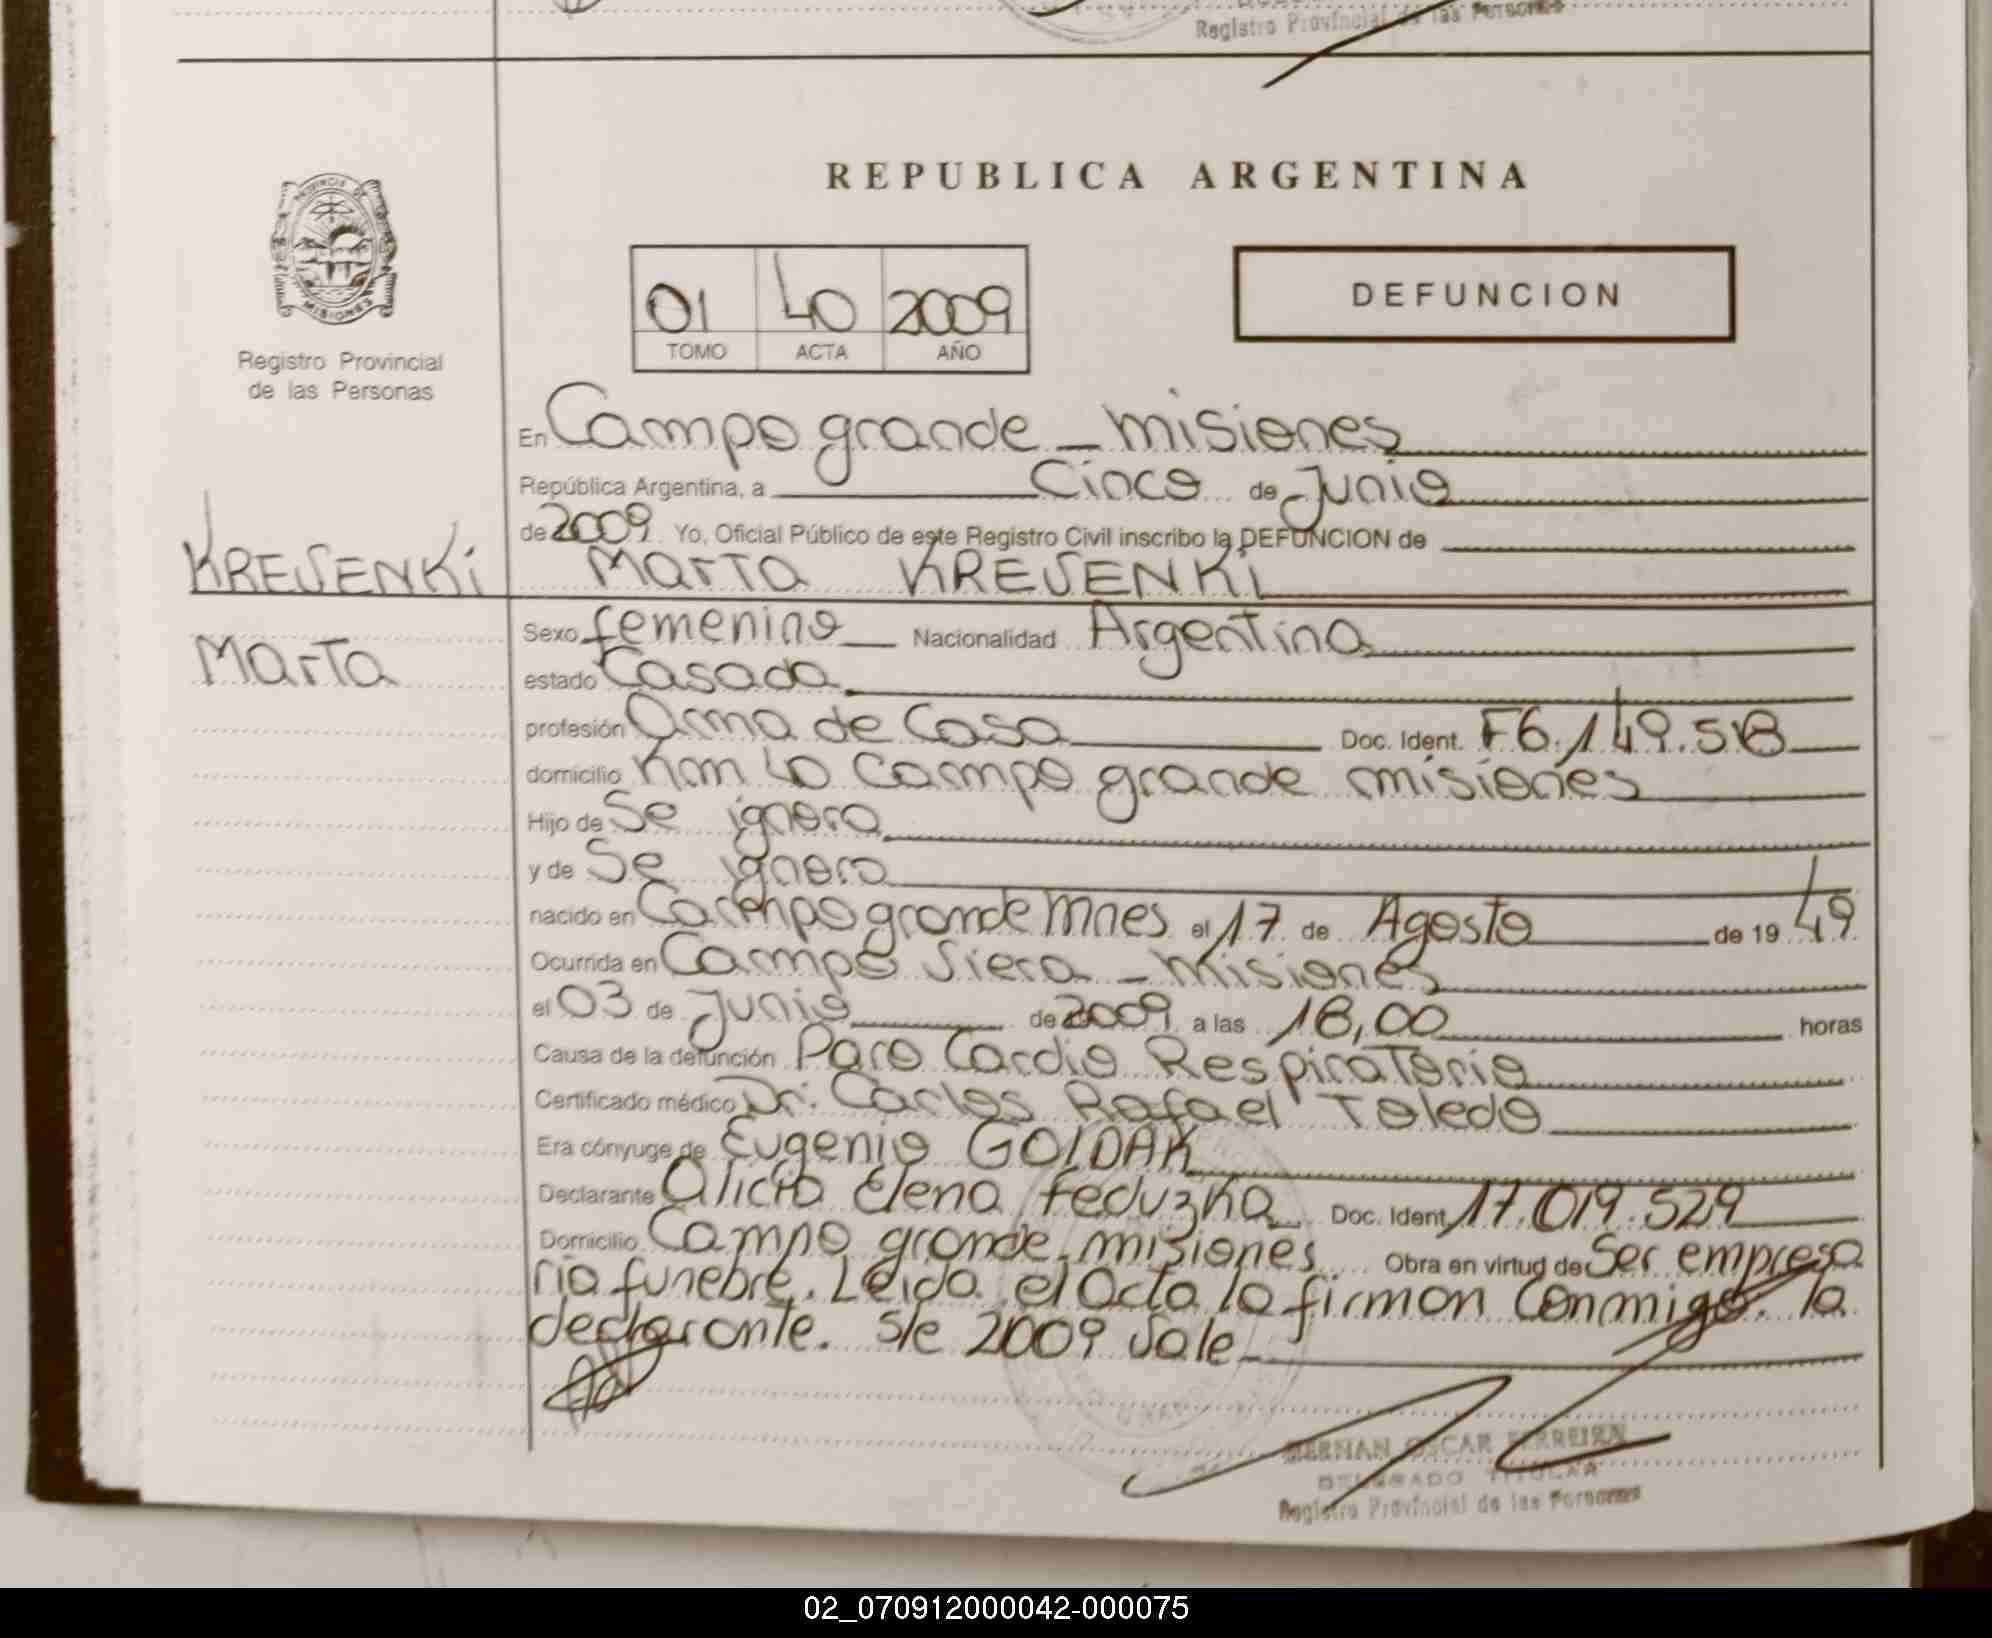 Registro Provincial de las Personas
REPUBLICA ARGENTINA
PROVINCIA DE
MISIONES
Registro Provincial
de las Personas
01 40 2009
TOMO ACTA AÑO
DEFUNCION
En Campo grande - misiones
República Argentina, a Cinco de Junio
de 2009 Yo, Oficial Público de este Registro Civil inscribo la DEFUNCION de
KRESENKi
Marta KRESENKi
Marta
Sexo femenino Nacionalidad Argentina
estado Casada
profesión Ama de Casa Doc. Ident. F6.149.518
domicilio Km 40 Campo grande misiones
Hijo de Se ignora
y de Se ignora
nacido en Campo grande Mnes el 17 de Agosto de 19 49
Ocurrida en Campo Siera - Misiones
el 03 de Junio de 2009 a las 18,00 horas
Causa de la defunción Paro Cardio Respiratorio
Certificado médico Dr. Carlos Rafael Toledo
Era cónyuge de Eugenio GOLDAK
Declarante Alicia Elena Feduzka Doc. Ident 17.019.529
Domicilio Campo grande-misiones Obra en virtud de Ser empresa
ria funebre. Leida el Acta la firman Conmigo. la
declarante. s/e 2009 Vale
HERNAN OSCAR FERREIRA
DELEGADO TITULAR
Registro Provincial de las Personas
02_070912000042-000075